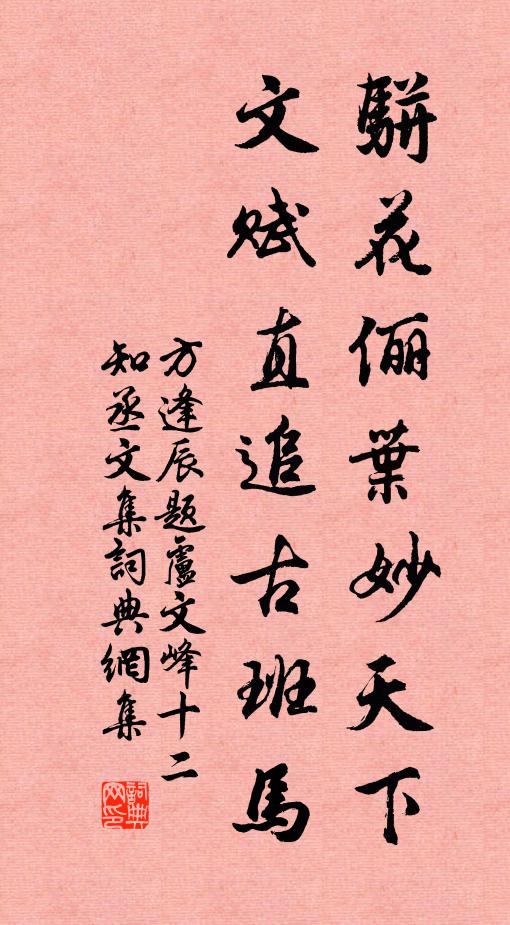 駢花儷葉妙天下
文賦直追古班馬
方逢辰題盧文峰十二
知丞文集詞典網集
詞典网印